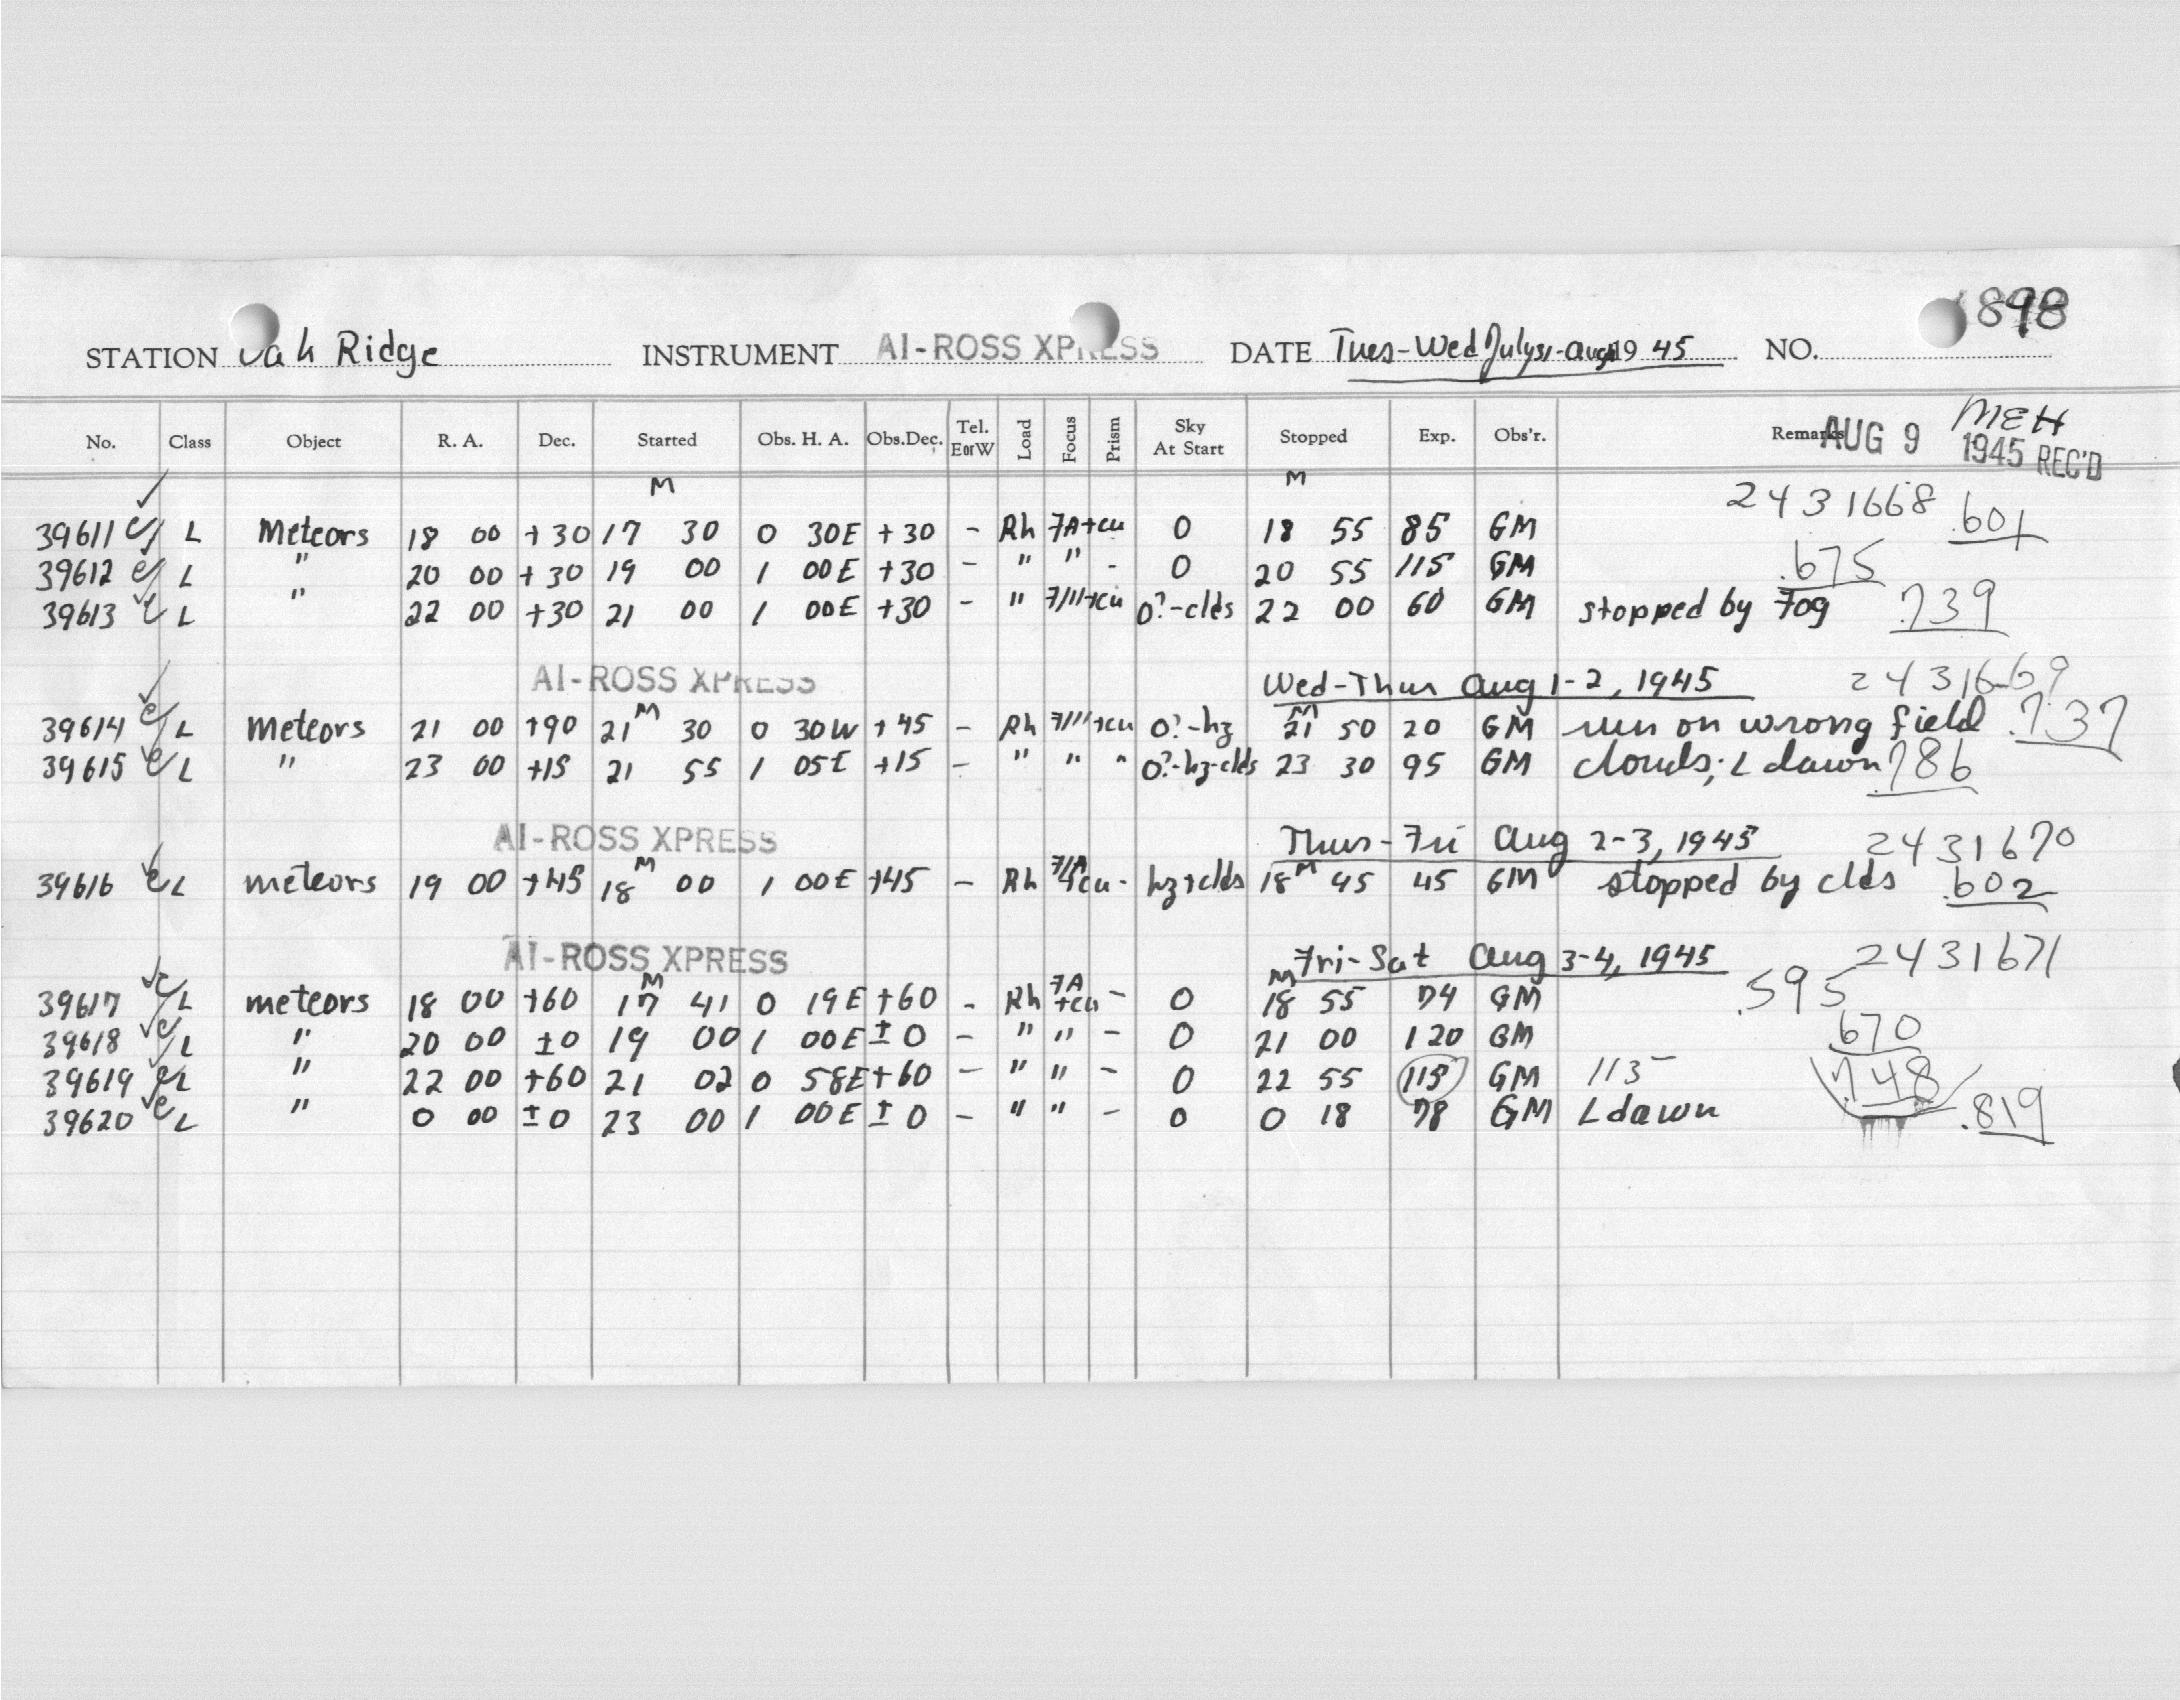 898
STATION Oak Ridge INSTRUMENT AI-ROSS XPRESS DATE Tues-Wed July 31-Aug 1 19 45 NO.
No. Class Object R. A. Dec. Started Obs. H. A. Obs.Dec. Tel. EorW Load Focus Prism Sky At Start Stopped Exp. Obs'r. Remarks
AUG 9 1945 REC'D MEH
M M 2431668
39611 e L Meteors 18 00 +30 17 30 0 30E +30 - Rh 7A+cu 0 18 55 85 GM .601
39612 e L " 20 00 +30 19 00 1 00E +30 - " " - 0 20 55 115 GM .675
39613 e L " 22 00 +30 21 00 1 00E +30 - " 7/11+cu 0?-clds 22 00 60 GM stopped by fog .739
AI-ROSS XPRESS Wed-Thur Aug 1-2, 1945 2431669
39614 e L Meteors 21 00 +90 21 M 30 0 30W +45 - Rh 7/11+cu 0?-hz M 21 50 20 GM run on wrong field .737
39615 e L " 23 00 +15 21 55 1 05E +15 - " " " 0?-hz-clds 23 30 95 GM clouds; L dawn .786
AI-ROSS XPRESS Thur-Fri Aug 2-3, 1945 2431670
39616 e L meteors 19 00 +45 18 M 00 1 00E +45 - Rh 7/A +cu - hz+clds 18 M 45 45 GM stopped by clds .602
AI-ROSS XPRESS Fri-Sat Aug 3-4, 1945 2431671
39617 e L meteors 18 00 +60 17 M 41 0 19E +60 - Rh 7A +cu - 0 M 18 55 74 GM .595
39618 e L " 20 00 ±0 19 00 1 00E ±0 - " " - 0 21 00 120 GM 670
39619 e L " 22 00 +60 21 02 0 58E +60 - " " - 0 22 55 113 GM 113 .748
39620 e L " 0 00 ±0 23 00 1 00E ±0 - " " - 0 0 18 78 GM L dawn .819